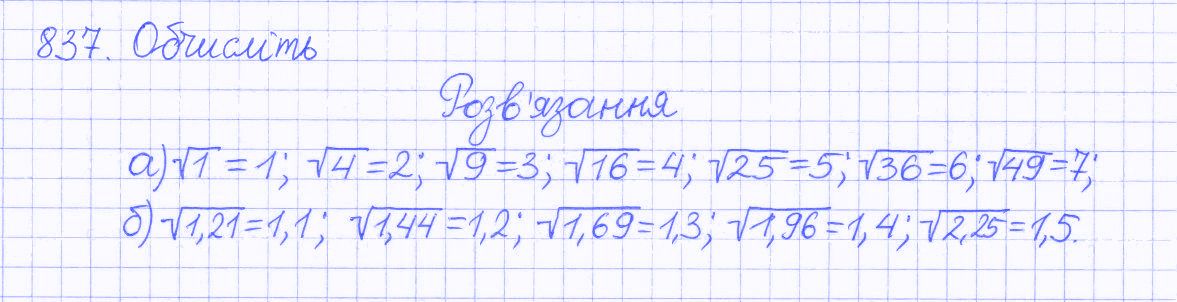 837. Обчисліть
Розв'язання
а) √1 = 1; √4 = 2; √9 = 3; √16 = 4; √25 = 5; √36 = 6; √49 = 7;
б) √1,21 = 1,1; √1,44 = 1,2; √1,69 = 1,3; √1,96 = 1,4; √2,25 = 1,5.